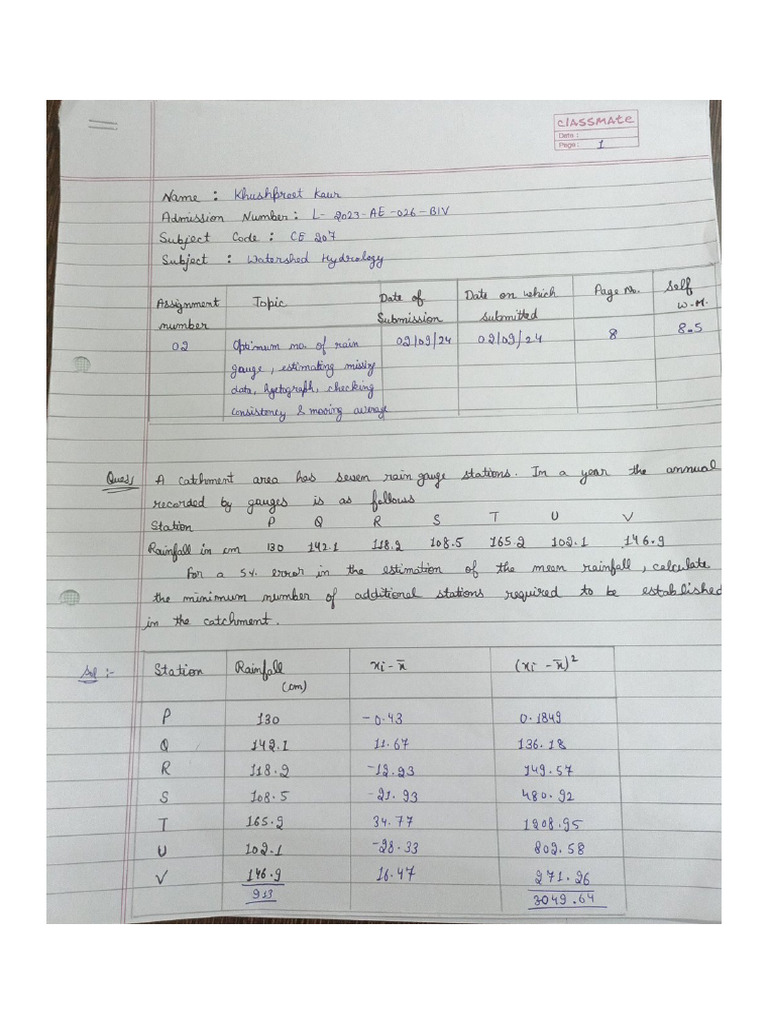 classmate
Date :
Page : 1
Name : Khushpreet Kaur
Admission Number : L- 2023-AE-026-BIV
Subject Code : CE 207
Subject : Watershed Hydrology
Assignment number Topic Date of Submission Date on which submitted Page No. Self W.M.
02 Optimum no. of rain 02/09/24 02/09/24 8 8.5
gauge, estimating missing
data, hyetograph, checking
consistency & moving average
Ques, A catchment area has seven rain gauge stations. In a year the annual
recorded by gauges is as follows
Station P Q R S T U V
Rainfall in cm 130 142.1 118.2 108.5 165.2 102.1 146.9
For a 5% error in the estimation of the mean rainfall, calculate
the minimum number of additional stations required to be established
in the catchment.
Sol :- Station Rainfall (cm) xi - x̄ (xi - x̄)²
P 130 -0.43 0.1849
Q 142.1 11.67 136.18
R 118.2 -12.23 149.57
S 108.5 -21.93 480.92
T 165.2 34.77 1208.95
U 102.1 -28.33 802.58
V 146.9 16.47 271.26
913 3049.64